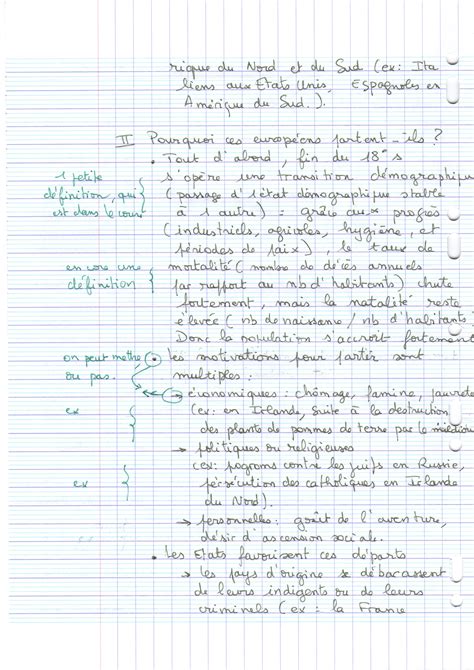 rique du Nord et du Sud (ex: Ita
liens aux Etats Unis, Espagnoles en
Amérique du Sud.).
II Pourquoi ces européens partent-ils ?
• Tout d'abord, fin du 18e s
s'opère une transition démographique
1 petite
définition, qui
est dans le cours
(passage d'1 état démographique stable
à 1 autre) : grâce aux progrès
(industriels, agricoles, hygiène, et
périodes de paix), le taux de
mortalité (nombre de décès annuels
encore une
définition
par rapport au nb d'habitants) chute
fortement, mais la natalité reste
élevée (nb de naissance / nb d'habitants)
Donc la population s'accroît fortement
on peut mettre
ou pas.
• les motivations pour partir sont
multiples :
→ économiques : chômage, famine, pauvreté
ex
(ex: en Irlande, suite à la destruction
des plants de pommes de terre par le mildiou
→ politiques ou religieuses
ex
(ex: pogroms contre les juifs en Russie,
persécution des catholiques en Irlande
du Nord).
→ personnelles: goût de l'aventure,
désir d'ascension sociale.
• Les Etats favorisent ces départs
→ les pays d'origine se débarassent
de leurs indigents ou de leurs
criminels (ex : la France